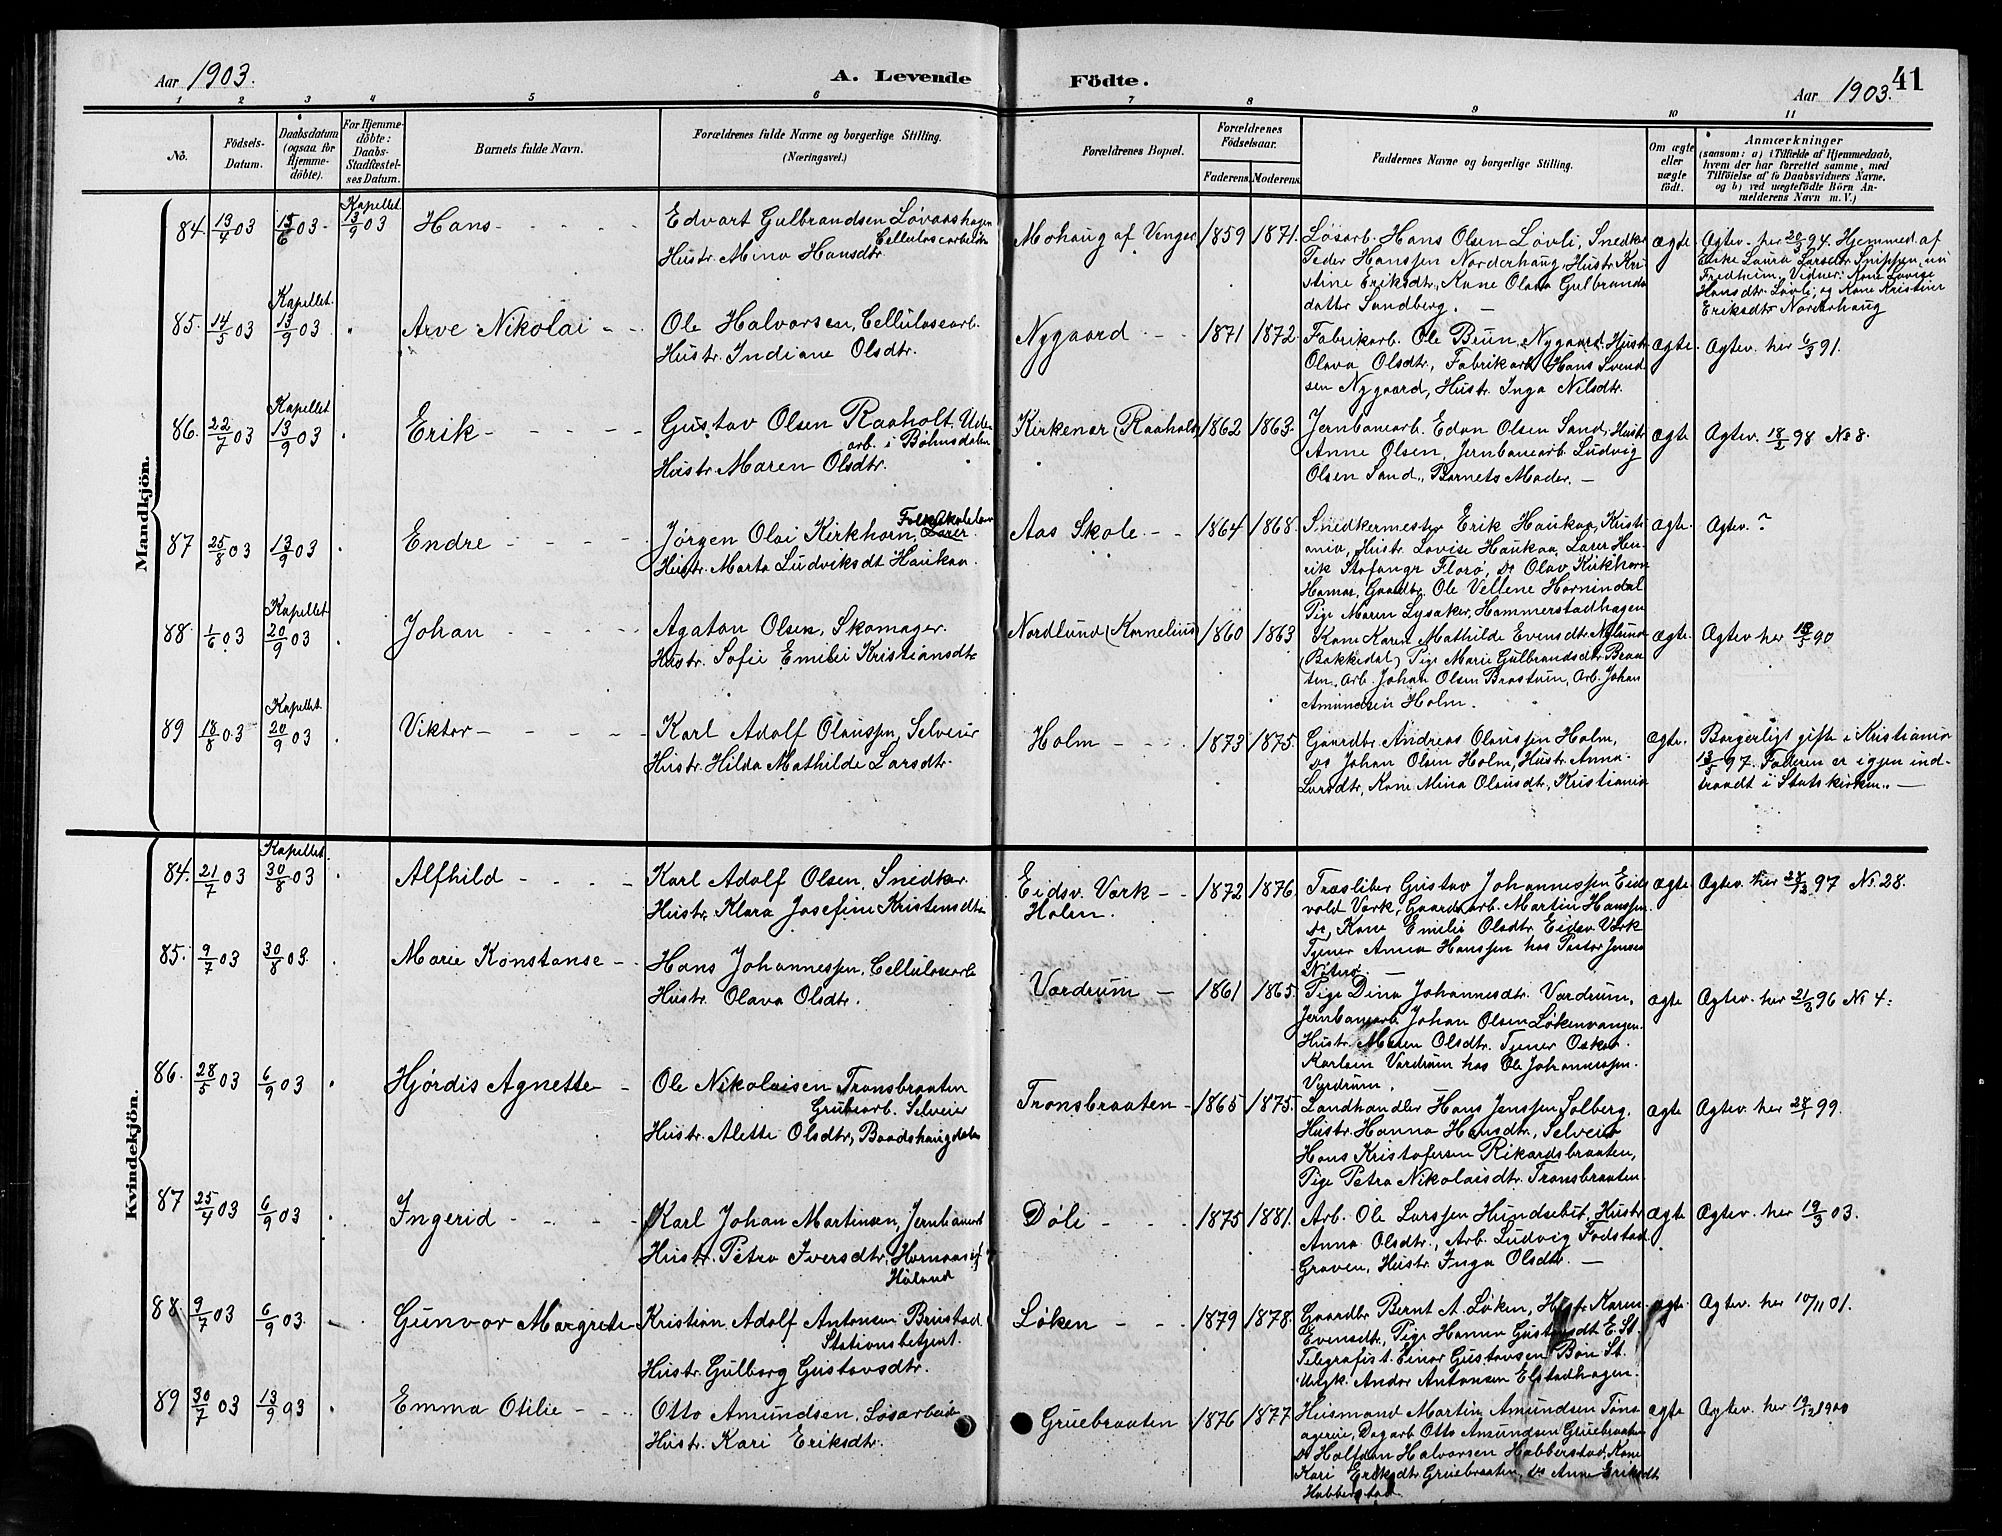 Aar 1903.
A. Levende Födte.
Aar 1903. 41
1 2 3 4 5 6 7 8 9 10 11
No.
Födsels-
Datum.
Daabsdatum
(ogsaa for
Hjemme-
döbte).
For Hjemme-
döbte:
Daabs-
Stadfæstel-
ses Datum.
Barnets fulde Navn.
Forældrenes fulde Navne og borgerlige Stilling.
(Næringsvei.)
Forældrenes Bopæl.
Forældrenes
Födselsaar.
Faderens. Moderens.
Faddernes Navne og borgerlige Stilling.
Om ægte
eller
uægte
födt.
Anmærkninger
(saasom: a) i Tilfælde af Hjemmedaab,
hvem der har forrettet samme, med
Tilföielse af to Daabsvidners Navne,
og b) ved uægtefödte Börn An-
melderens Navn m. V.)
Mandkjön.
84. 13/4 03 15/6 03 Kapellet 13/9 03 Hans
Edvart Gulbrandsen Løvaashagen
Cellulosearbeider
Hustr. Mina Hansdtr.
Mohaug af Venger 1859 1871.
Løsarb. Hans Olsen Løvli, Snedker
Peder Hanssen Norderhaug, Hustr. Kri
stine Eriksdtr, Kone Olava Gulbrands
datter Sandberg.
ægte
Ægtev. her 20/3 94. Hjemmed. af
Enke Laura Larsdtr Snippen, nu
Fredheim. Vidner: Kone Lovise
Hansdtr. Løvli, og Kone Kristine
Eriksdtr Norderhaug
85. 14/5 03 Kapellet 13/9 03 Arve Nikolai
Ole Halvorsen, Cellulosearb.
Hustr. Indiane Olsdtr.
Nygaard 1871 1872
Fabrikarb. Ole Brun, Nygaard, Hustr
Olava Olsdtr., Fabrikarb Hans Svend
sen Nygaard, Hustr. Inga Nilsdtr.
ægte. Ægtev. her 6/3 91.
86. 22/7 03 Kapellet 13/9 03 Erik
Gustav Olsen Raaholt, Ude
arb. i Bøhnsdalen
Hustr. Maren Olsdtr.
Kirkenær (Raaholt) 1862 1863.
Jernbanearb. Edon Olsen Sand, Hustr
Anne Olsen, Jernbanearb. Ludvig
Olsen Sand, Barnets Moder. —
ægte Ægtev. 18/2 98 No 8.
87 25/8 03 13/9 03 Endre
Jørgen Olai Kirkhorn, Lærer.
Hustr. Marta Ludviksdt Haukaa.
Aas Skole 1864 1868.
Snedkermester Erik Haukaa, Kristi
ania, Hustr. Lovise Haukaa, Lærer Hen
rik Stafangr Florø, Do Olav Kirkhorn
Hamar, Gaardbr. Ole Vellene Hornindal
Pige Maren Lysaker, Hammerstadhagen
ægte. Ægtev. ?
88. 1/6 03 Kapellet 20/9 03 Johan
Agaton Olsen, Skomager.
Hustr. Sofie Emilie Kristiansdtr
Nordlund (Kornelius) 1860 1863
Kone Karen Mathilde Evensdtr. Nylund
(Bakkedal) Pige Marie Gulbrandsdtr. Braa
ten, Arb. Johan Olsen Brostuen, Arb. Johan
Amundsen Holm.
ægte. Ægtev her 90
89 18/8 03 Kapellet 20/9 03 Viktor
Karl Adolf Olaussen, Selveier
Hustr. Hilda Mathilde Larsdtr.
Holm 1873 1875.
Gaardbr. Andreas Olaussen Holm,
Do Johan Olsen Holm, Hustr. Anna
Larsdtr., Kone Mina Olausdtr., Kristiania
ægte.
Borgerligt gifte i Kristiania
13/5 97. Faderen er igjen ind-
traadt i Statskirken. —
Kvindekjön.
84. 21/7 03 Kapellet 30/8 03 Alfhild
Karl Adolf Olsen, Snedker
Hustr. Klara Josefine Kristensdtr
Eidsv. Værk
Holm. 1872 1876
Træsliber Gustav Johannessen Eids
vold Værk, Gaardsarb. Martin Hanssen
Do, Kone Emilie Olsdtr. Eidsv. Værk
Tjener Anna Hanssen hos Pastor Jensen
ægte Ægtev. her 97 No. 28.
85. 9/7 03 30/8 03. Marie Konstanse
Hans Johannessen, Cellulosearb
Hustr. Olava Olsdtr.
Vardrum 1861 1865.
Pige Dina Johannesdtr. Vardrum,
Jernbanearb. Johan Olsen Løkenvangen
Hustr. Maren Olsdtr. Tjener Oskar
Karlsen Vardrum hos Ole Johannessen.
Vardrum.
ægte Ægtev. her 21/3 96 No 4.
86. 28/5 03 6/9 03 Hjørdis Agnette
Ole Nikolaisen Tronsbraaten
Grubearb. Selveier
Hustr. Alette Olsdtr, Baadshaugdalen
Tronsbraaten 1865 1875.
Landhandler Hans Jenssen Solberg.
Hustr. Hanna Hansdtr., Selveier
Hans Kristofersen Rikardsbraaten,
Pige Petra Nikolaisdtr. Tronsbraaten
ægte Ægtev. her 99.
87 25/4 03 6/9 03 Ingerid
Karl Johan Martinsen, Jernbanearb
Hustr. Petra Iversdtr, Hornaas i
Høland
Døli 1875 1881.
Arb. Ole Larssen Hundsebut, Hustr
Anna Olsdtr., Arb. Ludvig Fodstad
Graven, Hustr. Inga Olsdtr. —
ægte Ægtev. her 19/3 03.
88. 9/7 03 6/9 03. Gunvor Margrete
Kristian Adolf Antonsen Brustad
Stationsbetjent.
Hustr. Gulborg Gustavsdtr.
Løken 1879 1878.
Gaardbr Bernt A. Løken, Hustr. Karen
Evensdtr., Pige Hanna Gustavsdt E. St.
Telegrafist. Einar Gustavsen Bøn St.
Ungk. Andor Antonsen Elstadhagen.
ægte. Ægtev. her 10/11 01.
89 30/7 03 13/9 03 Emma Otilie
Otto Amundsen, Løsarbeider
Hustr. Kari Eriksdtr.
Gruebraaten 1876 1877
Husmand Martin Amundsen Tøns
ageeie, Dagarb Otto Amundsen Gruebraaten
Do Halfdan Halvorsen Habberstad, Kone
Kari Eriksdtr Gruebraaten, Do Anne Eriksdt
Habberstad.
ægte Ægtev. her 19/12 1900